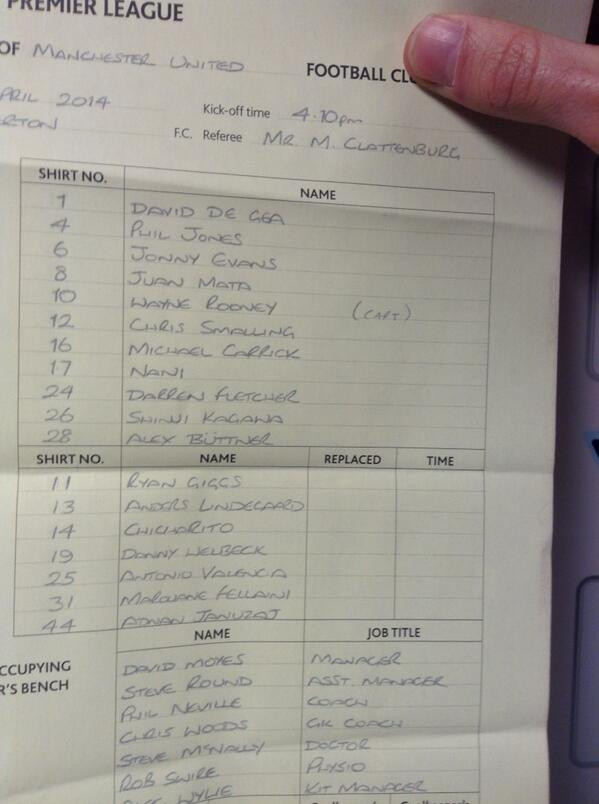 PREMIER LEAGUE
OF MANCHESTER UNITED FOOTBALL
APRIL 2014 Kick-off time 4.10pm
F.C. Referee MR M. CLATTENBURG
SHIRT NO. NAME
1 DAVID DE GEA
4 PHIL JONES
6 JONNY EVANS
8 JUAN MATA
10 WAYNE ROONEY (CAPT)
12 CHRIS SMALLING
16 MICHAEL CARRICK
17 NANI
24 DARREN FLETCHER
26 SHINJI KAGAWA
28 ALEX BÜTTNER
SHIRT NO. NAME REPLACED TIME
11 RYAN GIGGS
13 ANDERS LINDEGAARD
14 CHICHARITO
19 DANNY WELBECK
25 ANTONIO VALENCIA
31 MAROUANE FELLAINI
44 ADNAN JANUZAJ
NAME JOB TITLE
OCCUPYING DAVID MOYES MANAGER
R'S BENCH STEVE ROUND ASST. MANAGER
PHIL NEVILLE COACH
CHRIS WOODS GK COACH
STEVE McNALLY DOCTOR
ROB SWIRE PHYSIO
WYLIE KIT MANAGER